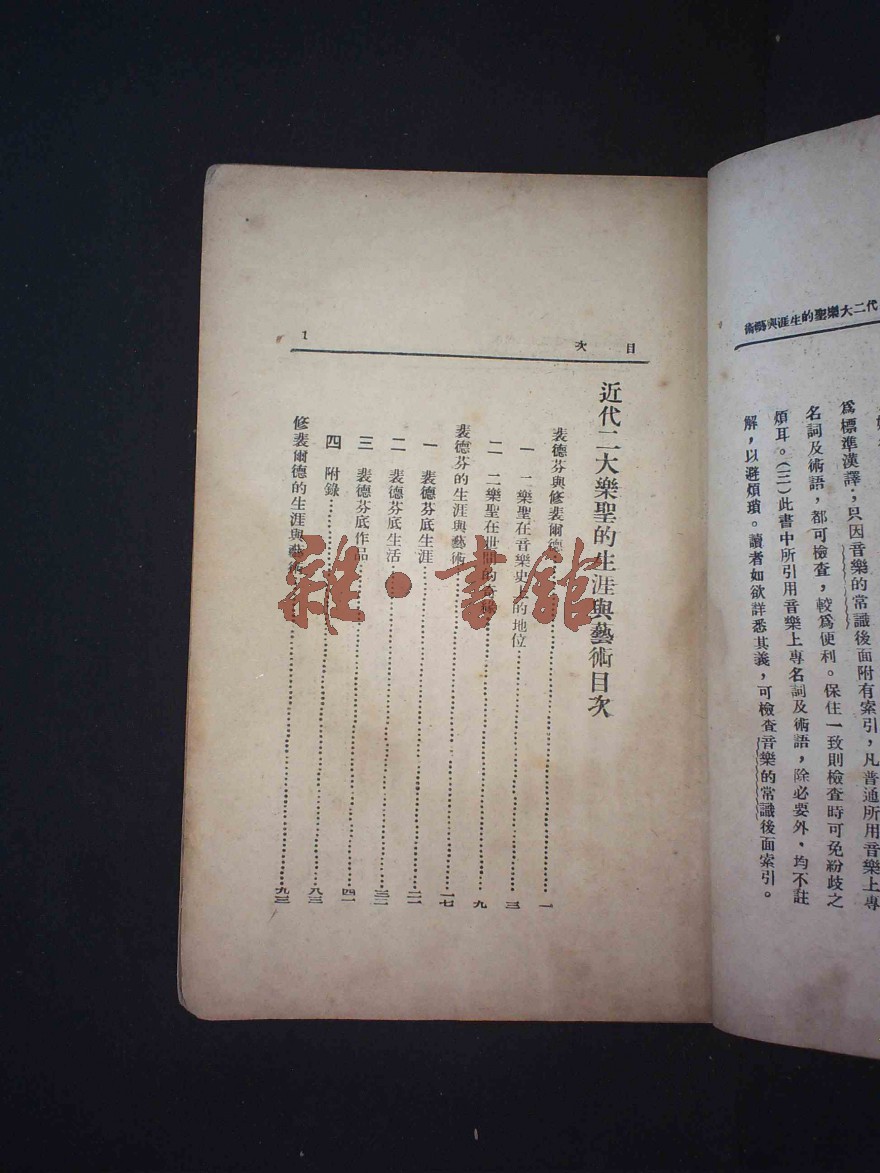 代二大樂聖的生涯與藝術
爲標準漢譯；只因音樂的常識後面附有索引，凡普通所用音樂上專
名詞及術語，都可檢查，較爲便利。保住一致則檢查時可免紛歧之
煩耳。(三)此書中所引用音樂上專名詞及術語，除必要外，均不註
解，以避煩瑣。讀者如欲詳悉其義，可檢查音樂的常識後面索引。
目次
1
近代二大樂聖的生涯與藝術目次
裴德芬與修裴爾德……一
一 二樂聖在音樂史上的地位……三
二 二樂聖在世間的奇……九
裴德芬的生涯與藝術……一七
一 裴德芬底生涯……二一
二 裴德芬底生活……三二
三 裴德芬底作品……四一
四 附錄……八三
修裴爾德的生涯與藝術……九三
雜·書館